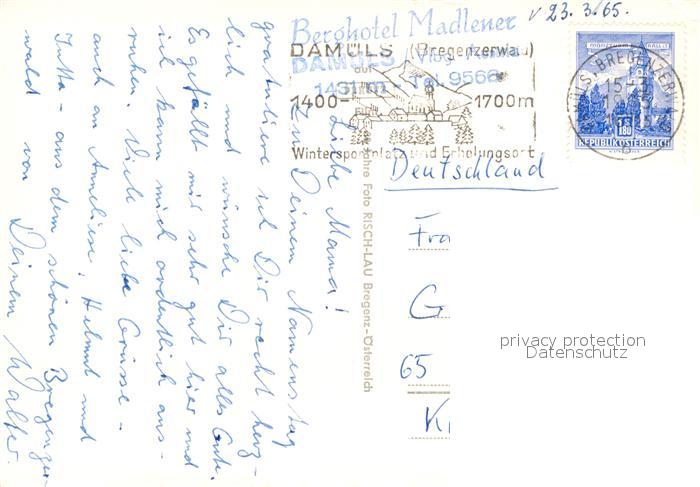 Liebe Mama!
Zu Deinem Namenstag
gratuliere ich Dir recht herz-
lich und wünsche Dir alles Gute.
Es gefällt mir sehr gut hier und
ich kann mich ordentlich aus-
ruhen. Viele liebe Grüsse –
auch an Anneliese, Helmut und
Jutta – aus dem schönen Bregenzer-
wald von Deinem Walter.
v 23. 3. 65.
Berghotel Madlener
DAMÜLS
1431 m - Tel. 9566
DAMÜLS (Bregenzerwald)
1400- 1700m
Wintersportplatz und Erholungsort
REPUBLIK ÖSTERREICH
1.80
Foto RISCH-LAU Bregenz-Österreich
Deutschland
Fra
G
65
K
privacy protection
Datenschutz